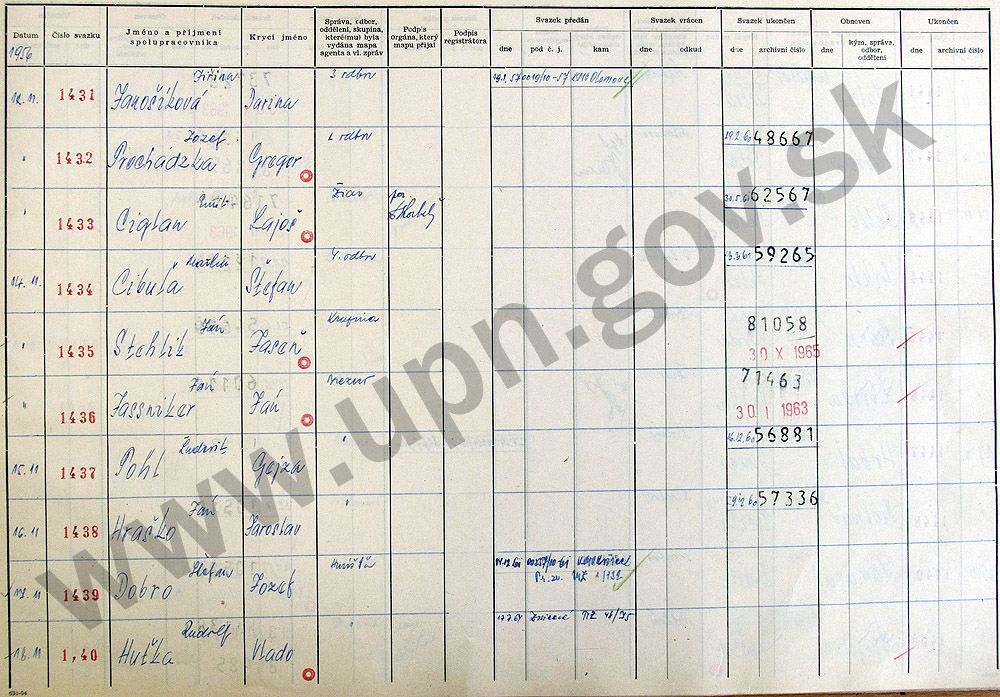 Datum
Číslo svazku
Jméno a příjmení
spolupracovníka
Krycí jméno
Správa, odbor,
oddělení, skupina,
které(mu) byla
vydána mapa
agenta a vl. zpráv
Podpis
orgána, který
mapu přijal
Podpis
registrátora
Svazek předán
dne
pod č. j.
kam
Svazek vrácen
dne
odkud
Svazek ukončen
dne
archivní číslo
Obnoven
dne
kým, správa,
odbor,
oddělení
Ukončen
dne
archivní číslo
1956
12.11. 1431 Jiřina
Janošíková Darina 3 odbor 19.1.57 0019/10-57 Olomouc
" 1432 Jozef
Procházka Gregor 2 odbor 19.2.60 48667
" 1433 Emil
Cigian Lajoš Žiar 62567
14.11. 1434
Cibula Štefan 4. odbor 59265
" 1435 Ján
Stehlik Jaseň Krupina 81058
30 X 1965
" 1436 Ján
Jassniker Ján 71463
30 I 1963
15.11 1437 Ľudovít
Pohl Gejza " 16.12.60 56881
16.11 1438 Ján
Hraško Jaroslav " 57336
17.11 1439 Štefan
Dobro Jozef
18.11 1,40 Rudolf
Huťka Vlado " 17.7.61
www.upn.gov.sk